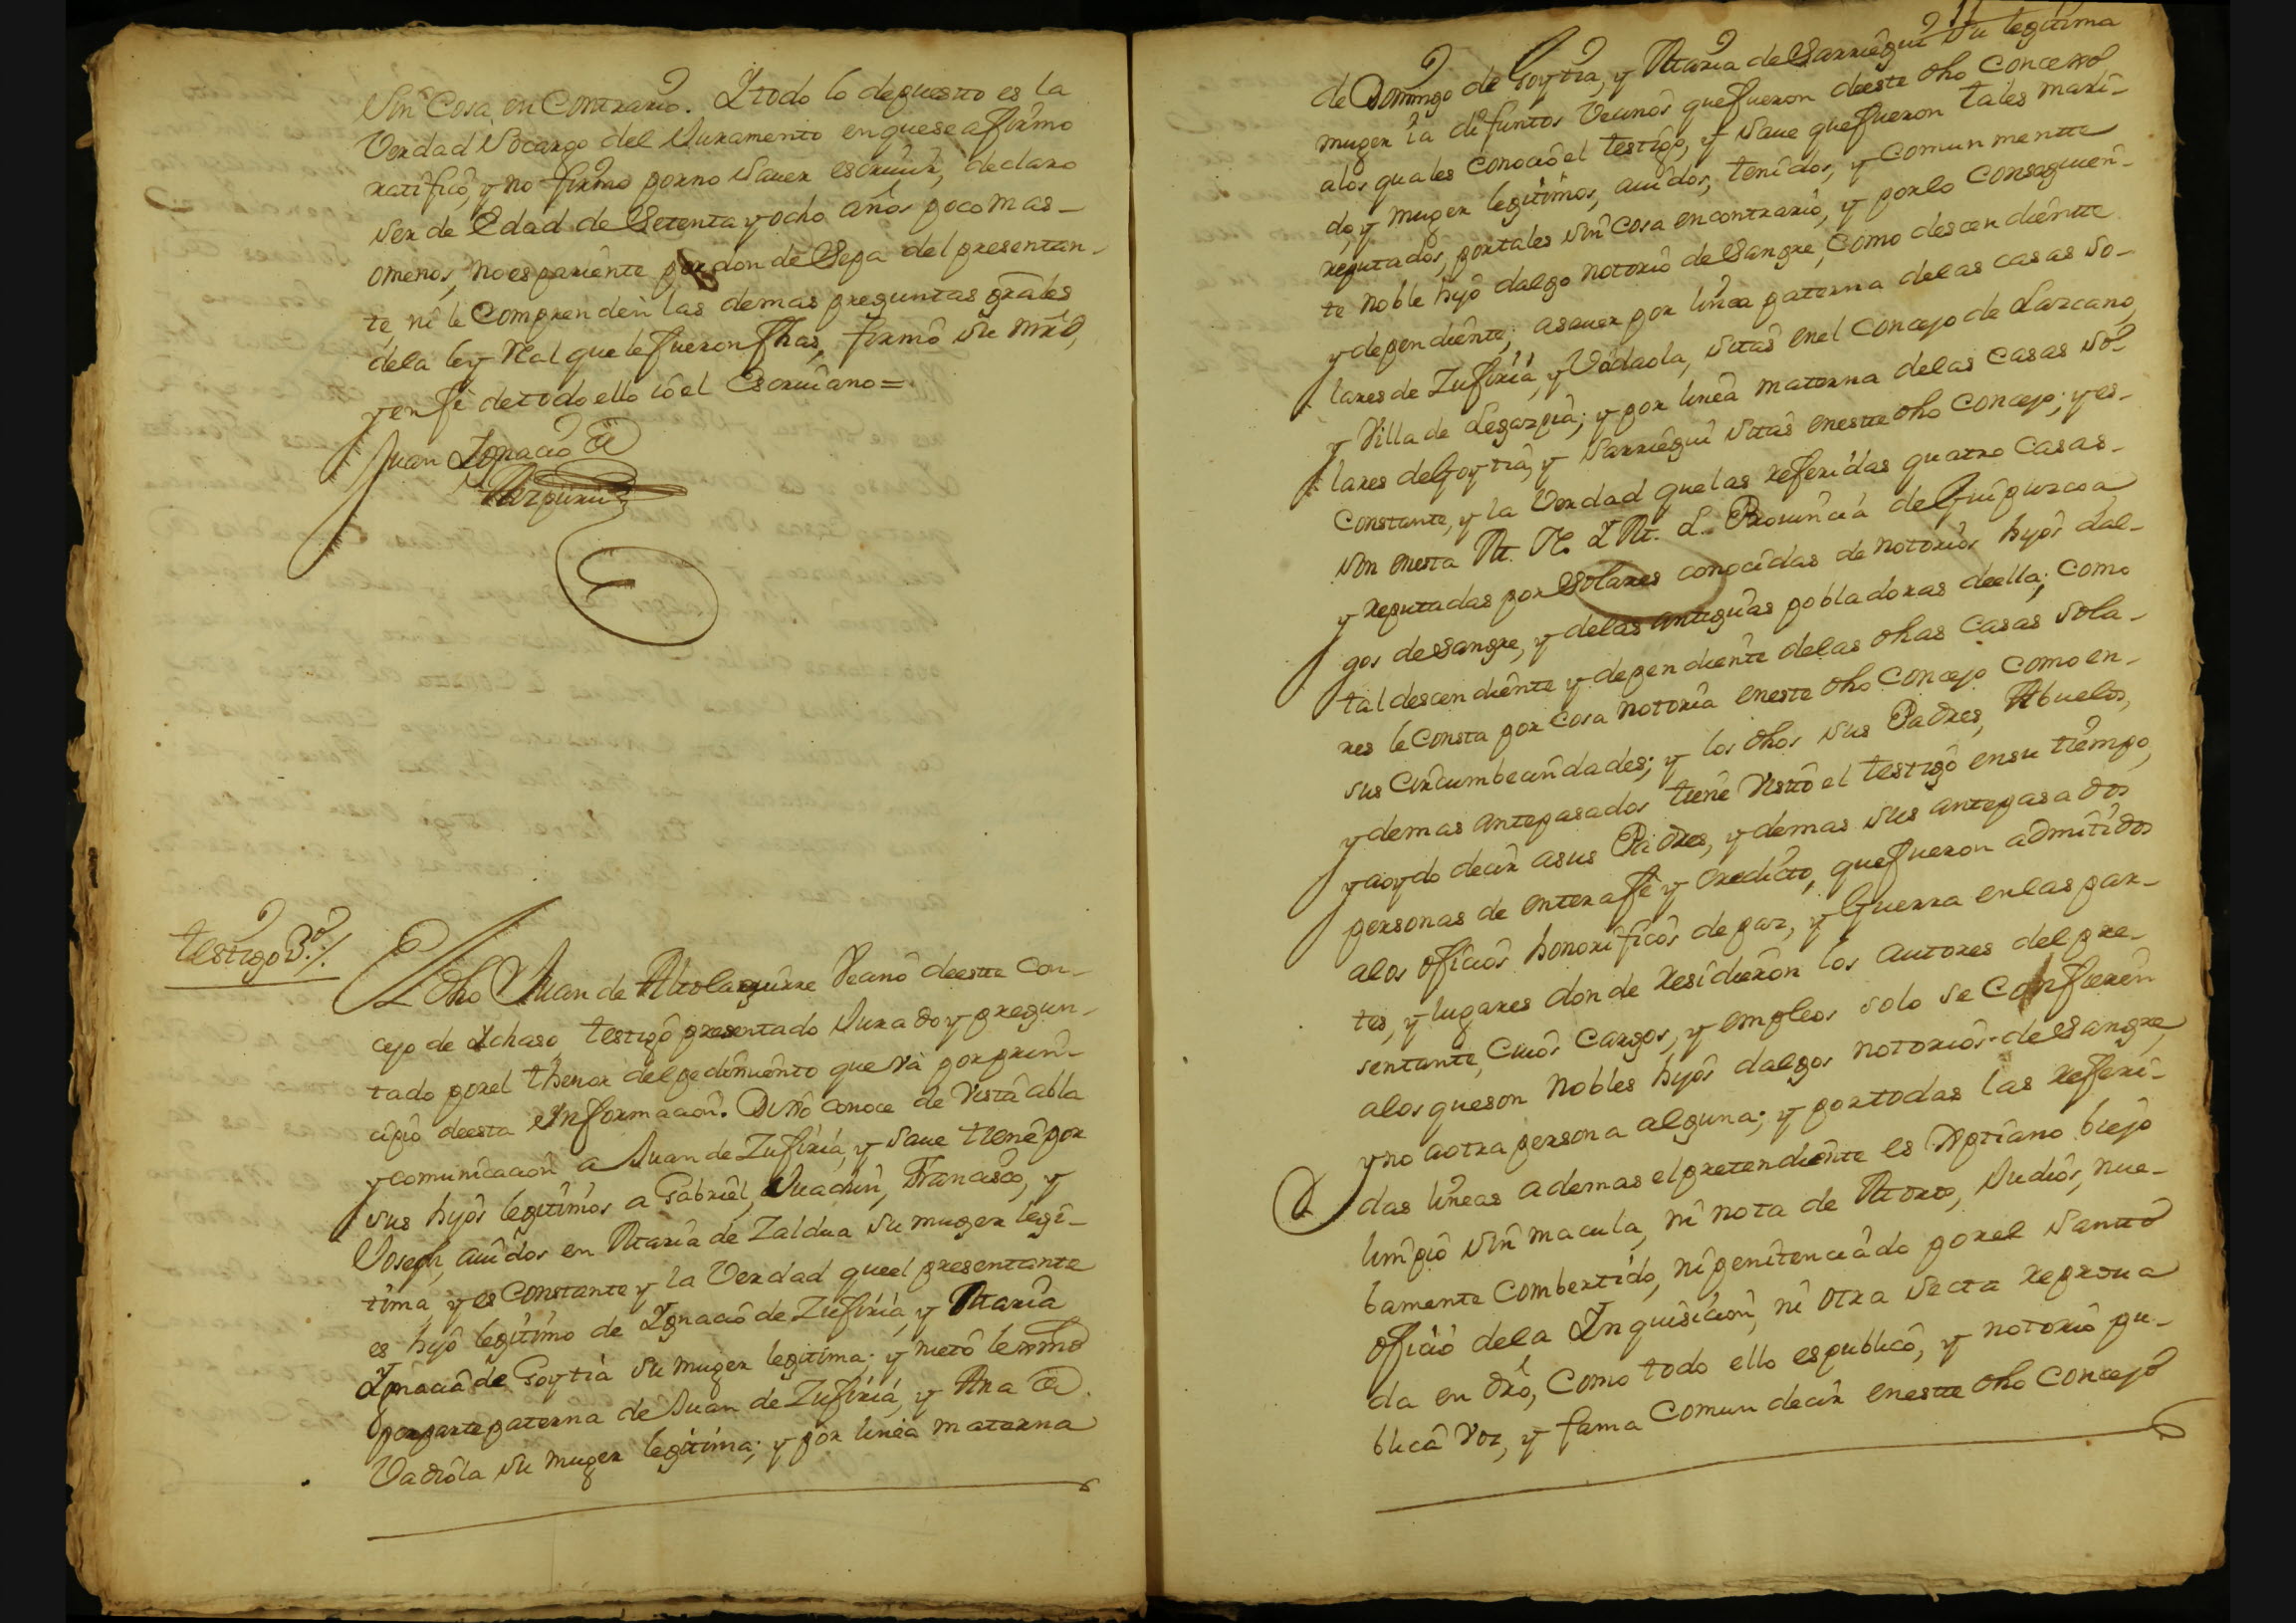 Sin Cosa en Contrario. Y todo lo depuesto es la
Verdad Socargo del Juramento en que se afirmo
ratifico, y no firmo por no Saver escriuir, declaro
Ser de Edad de Setenta y ocho años poco mas
o menos, no es pariente por donde Sepa del presentan-
te, ni le Comprenden las demas preguntas grâles
de la ley Real que le fueron fhas, firmó Su mrd,
y en fé de todo ello io el Escriuano=
Juan Ignacio de
Azpiuru
testigo 3º/.
El dho Juan de Altolaguirre Vecino deeste Con-
cejo de Ychaso testigo presentado Jurado y pregun-
tado por el thenor del pedimiento que va por prin-
cipio deesta Informacion. Dixo conoce de Vista abla
y comunicacion a Juan de Zufiria, y Saue tiene por
sus hijos legitimos a Gabriel, Juachin, Francisco, y
Joseph, auidos en Maria de Zaldua Su muger legi-
tima, y es Constante y la Verdad que el presentante
es hijo legitimo de Ygnacio de Zufiria, y Maria
Ygnacia de Goytia Su muger legitima; y nieto lexmo
por parte paterna de Juan de Zufiria, y Ana de
Vadiola Su muger legitima; y por linea materna
de Domingo de Goytia, y Maria de Sarriegui Su legitima
muger ia difuntos Vecinos que fueron deeste dho Concejo
a los quales Conocio el testigo, y Saue que fueron tales mari-
do, y muger legitimos, auidos, tenidos, y Comunmentte
reputados, por tales Sin Cosa en contrario, y por lo Consiguien-
te Noble hijo dalgo notorio de Sangre, Como descendientte
y dependiente; a sauer por linea paterna de las casas So-
lares de Zufiria, y Vidaola, Sitas en el Concejo de Lazcano,
y Villa de Legazpia; y por linea materna de las Casas So-
lares de Goytia, y Sarriegui Sitas en estte dho Concejo; y es
Constante, y la Verdad que las referidas quatro Casas
son en esta M. N. Y M. L. Prouincia de Guipuzcoa,
y reputadas por Solares conocidas de notorios hijos dal-
gos de Sangre, y de las antiguas pobladoras de ella; Como
tal descendiente y dependiente de las dhas Casas Sola-
res le Consta por Cosa notoria en este dho Concejo Como en
sus Circumbecindades; y los dhos Sus Padres, Abuelos,
y demas antepasados tiene Visto el testigo en su tiempo,
y a oydo decir a sus Padres, y demas Sus antepasados
personas de entera fé y credito, que fueron admitidos
a los oficios honorificos de paz, y Guerra en las par-
tes, y lugares donde Residieron los autores del pre-
sentante, Cuios Cargos, y empleos solo se Confieren
a los que son Nobles hijos dalgos notorios de Sangre,
y no a otra persona alguna; y por todas las referi-
das lineas ademas el pretendiente es Xptiano biejo
limpio Sin macula, ni nota de Moros, Judios, nue-
bamente Combertido, ni penitenciado por el Santto
oficio de la Ynquisicion, ni otra Secta reproua
da en dro, Como todo ello es publico, y notorio pu-
blica Voz, y fama Comun decir en estte dho Concejo